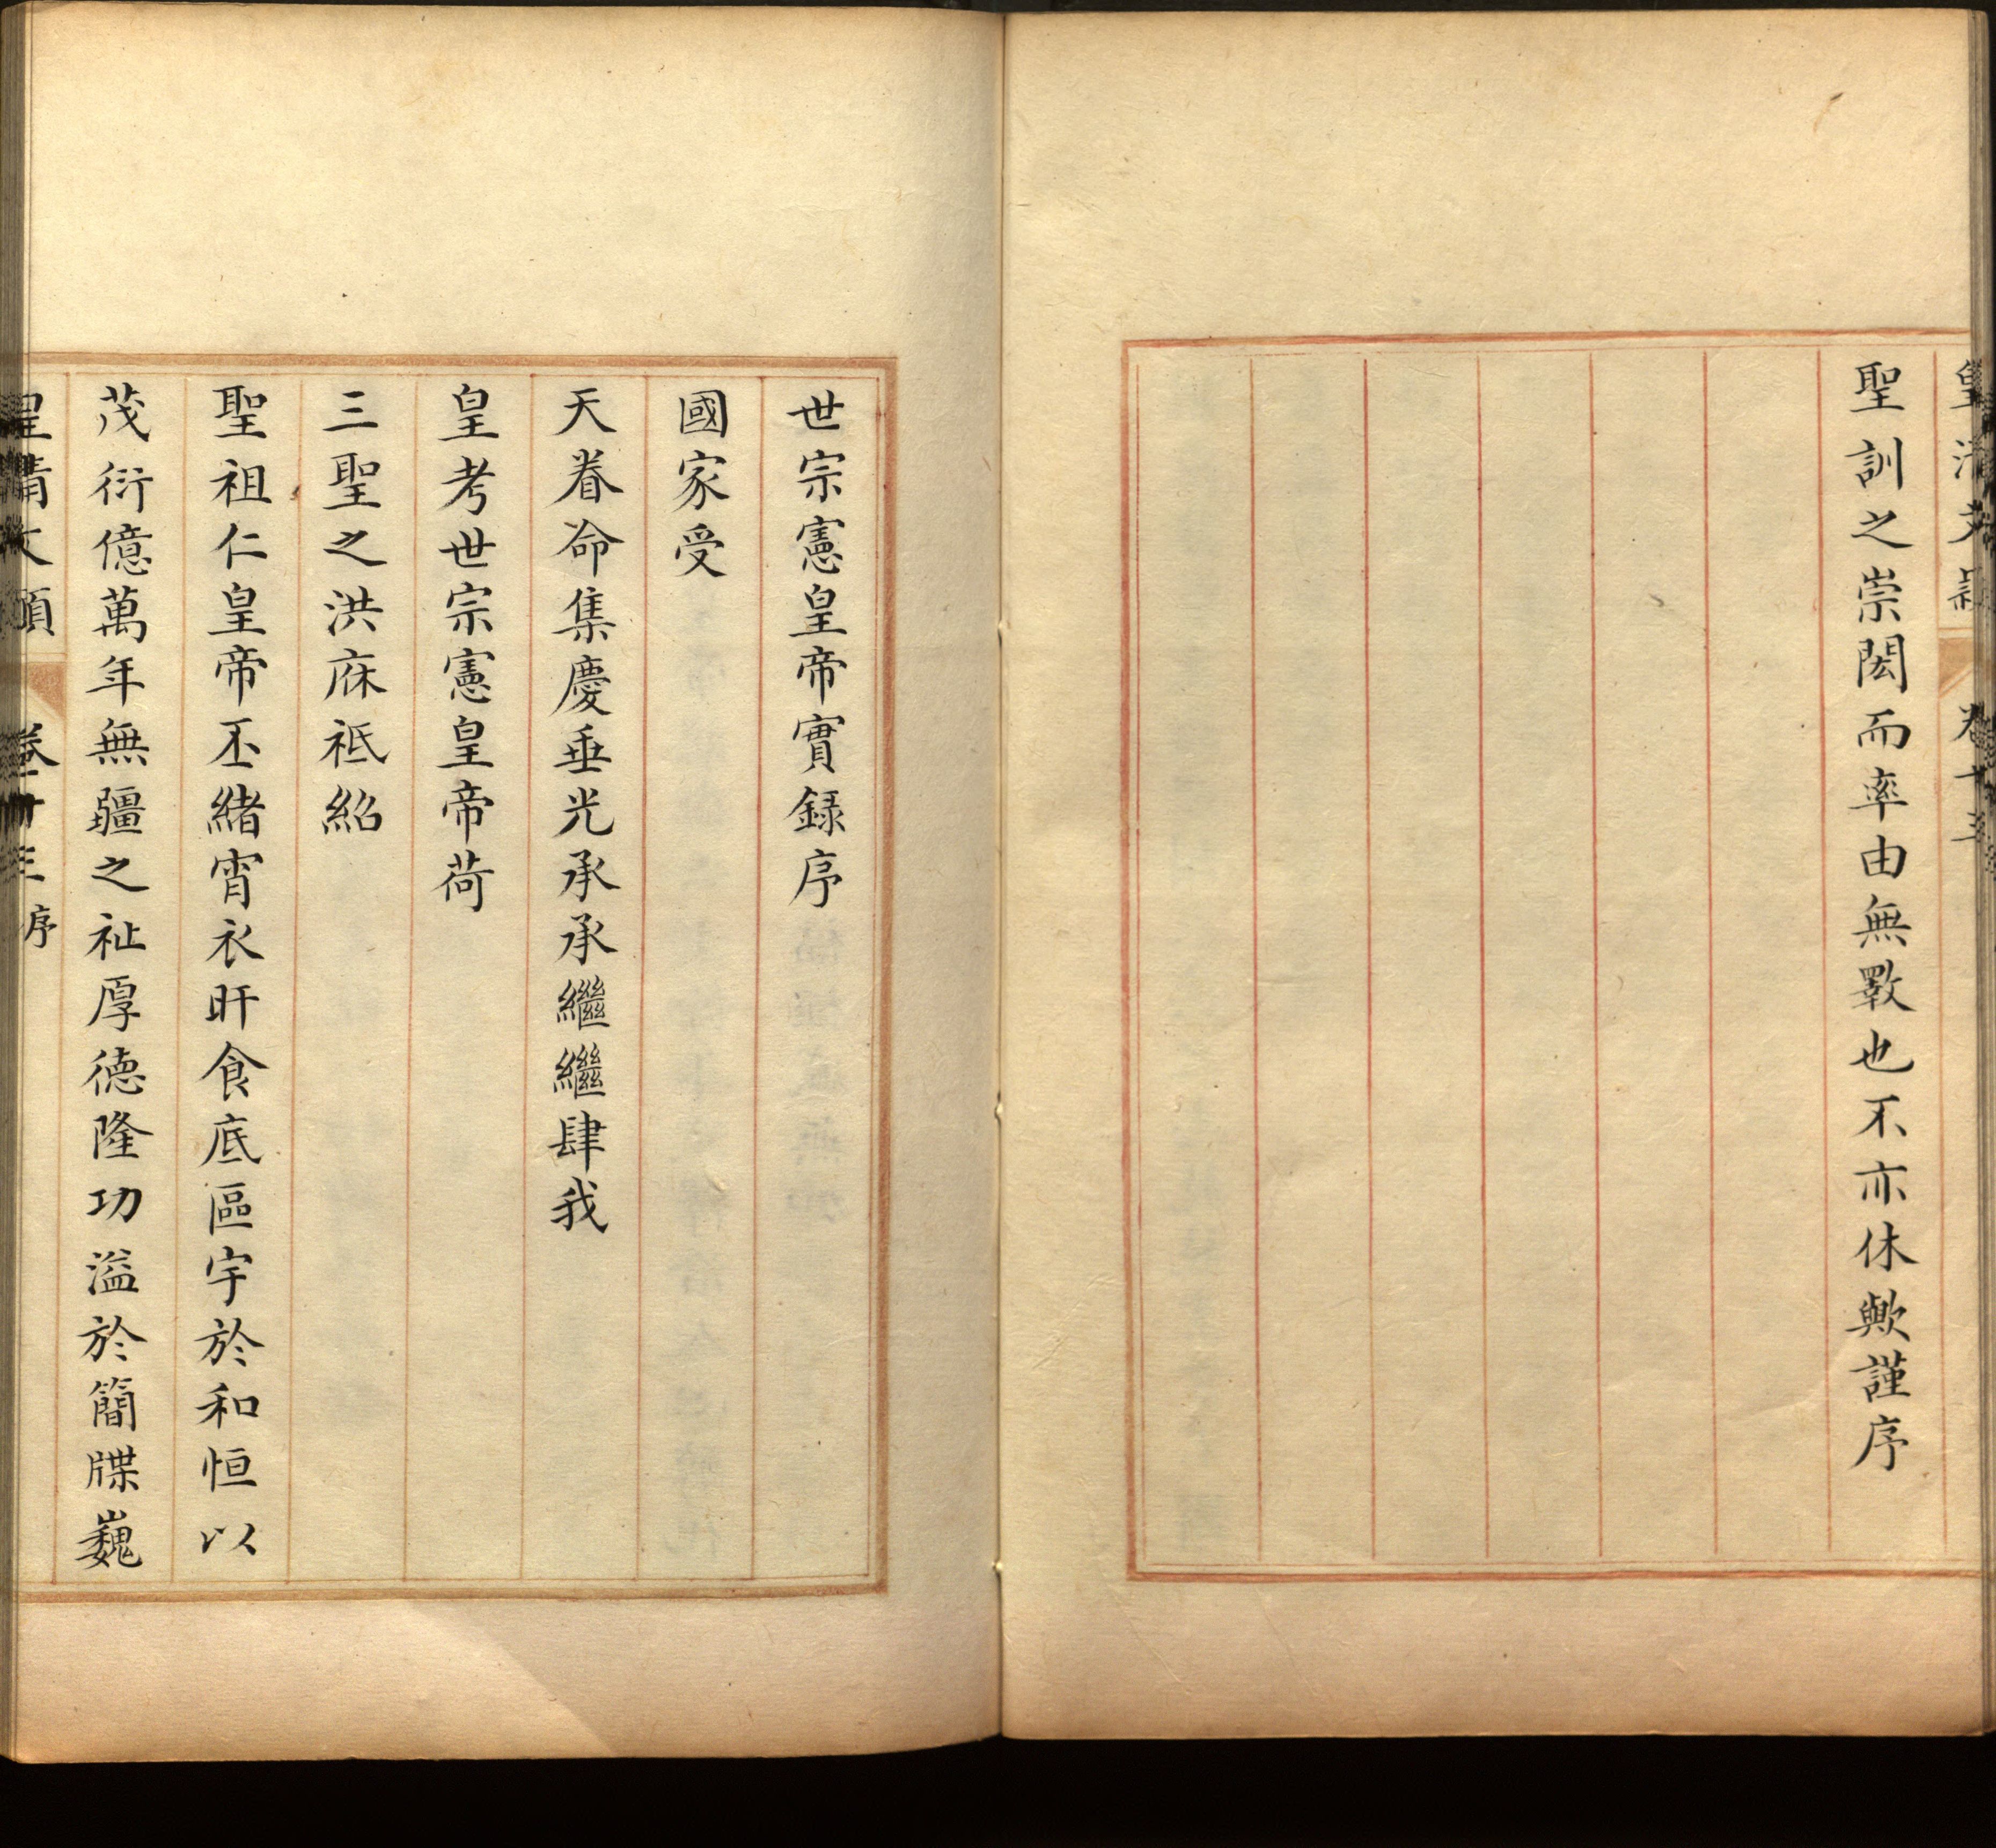 皇清文穎 卷十三
聖訓之崇閎而率由無斁也不亦休歟謹序
世宗憲皇帝實錄序
國家受
天眷命集慶垂光承承繼繼肆我
皇考世宗憲皇帝荷
三聖之洪庥祗紹
聖祖仁皇帝丕緒宵衣旰食底區宇於和恒以
茂衍億萬年無疆之祉厚德隆功溢於簡牒巍
皇清文穎 卷十三 序